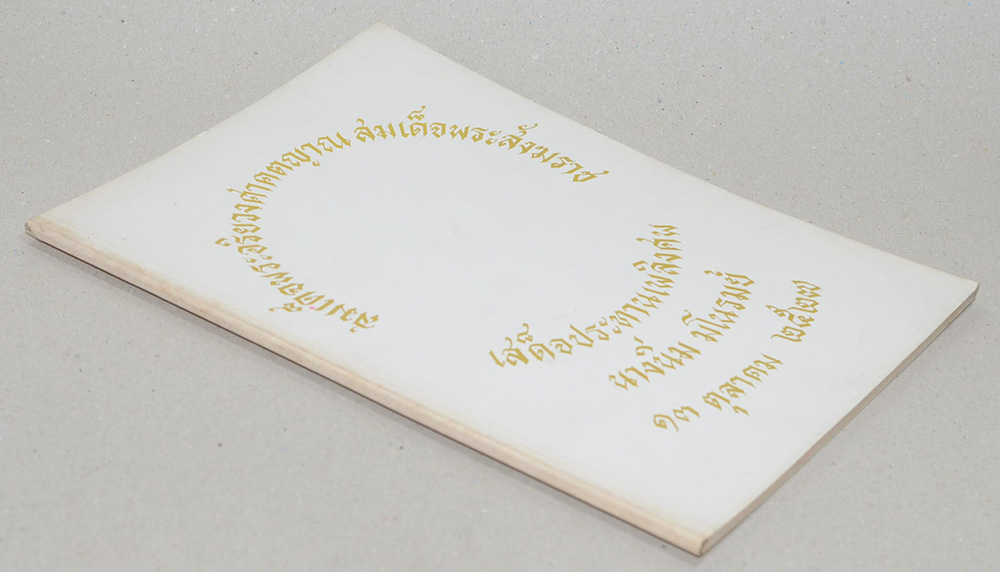 สมเด็จพระอริยวงศาคตญาณ สมเด็จพระสังฆราช
เสด็จประทานเพลิงศพ
นางนิ่ม มโนรมย์
๑๓ ตุลาคม ๒๕๒๗